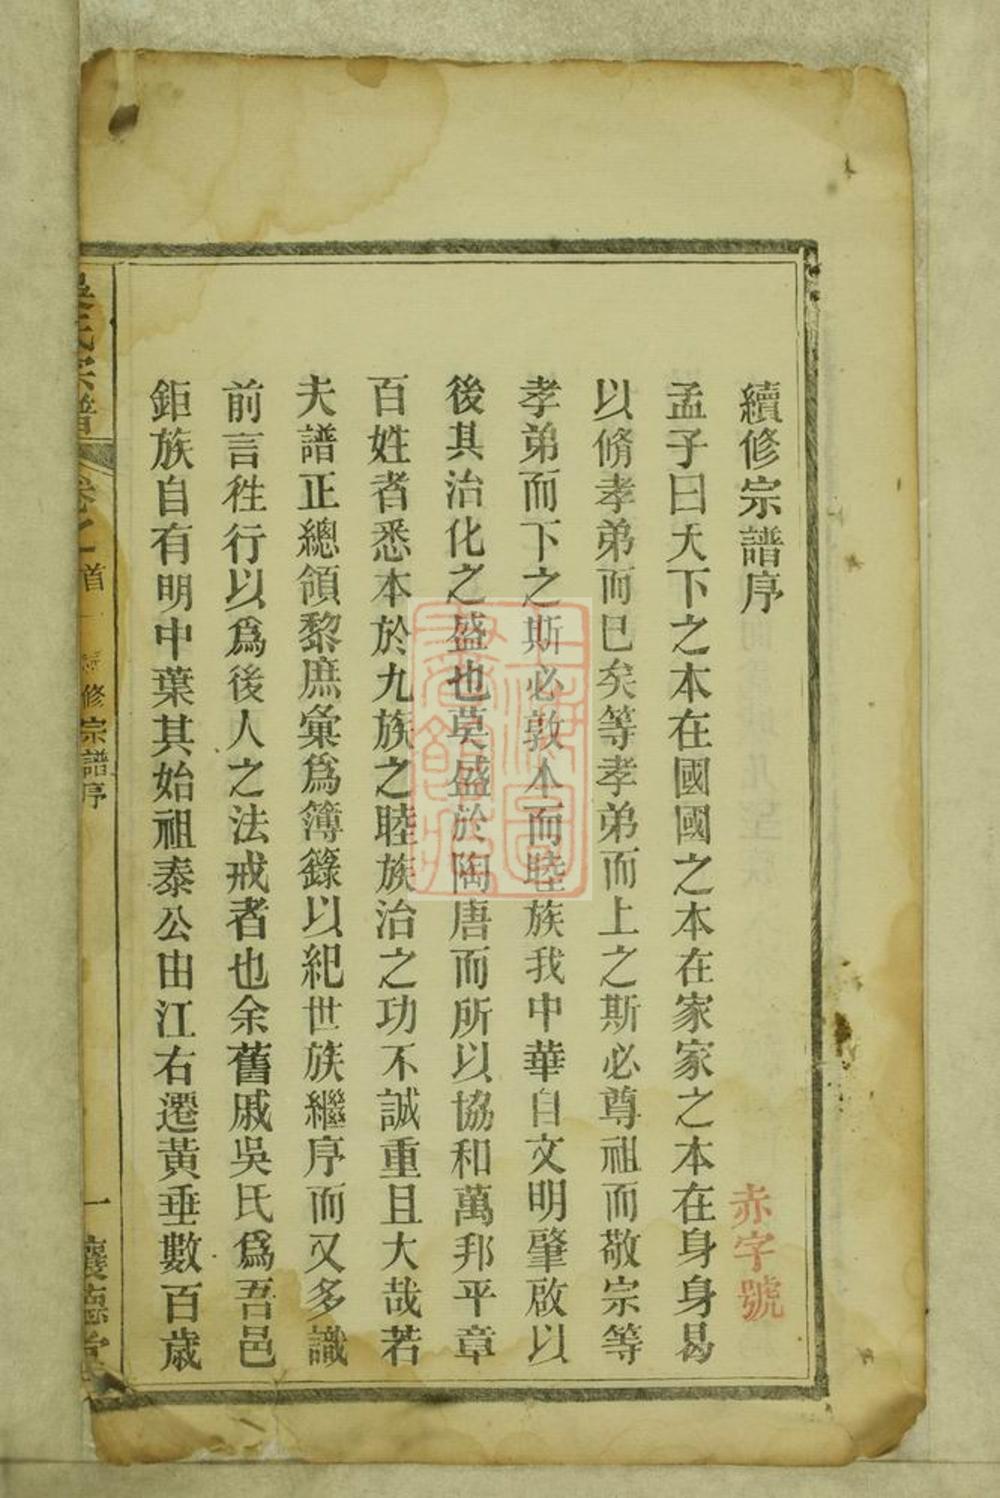 續修宗譜序
赤字號
孟子曰天下之本在國國之本在家家之本在身身曷
以脩孝弟而巳矣等孝弟而上之斯必尊祖而敬宗等
孝弟而下之斯必敦本而睦族我中華自文明肇啟以
後其治化之盛也莫盛於陶唐而所以協和萬邦平章
百姓者悉本於九族之睦族治之功不誠重且大哉若
夫譜正總領黎庶彙爲簿錄以紀世族繼序而又多識
前言徃行以爲後人之法戒者也余舊戚吳氏爲吾邑
鉅族自有明中葉其始祖泰公由江右遷黃垂數百歲
吳氏宗譜
卷之首
修宗譜序
一
讓德堂
上海圖書館藏